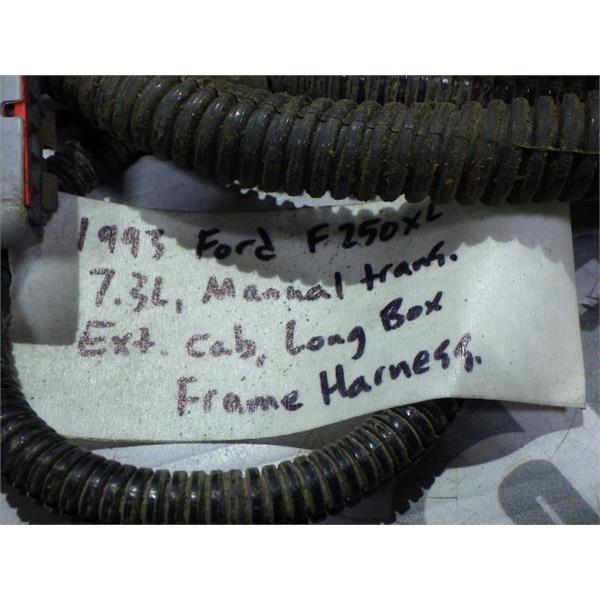 1993 Ford F250XL
7.3L, Manual trans.
Ext. cab, Long Box
Frame Harness.